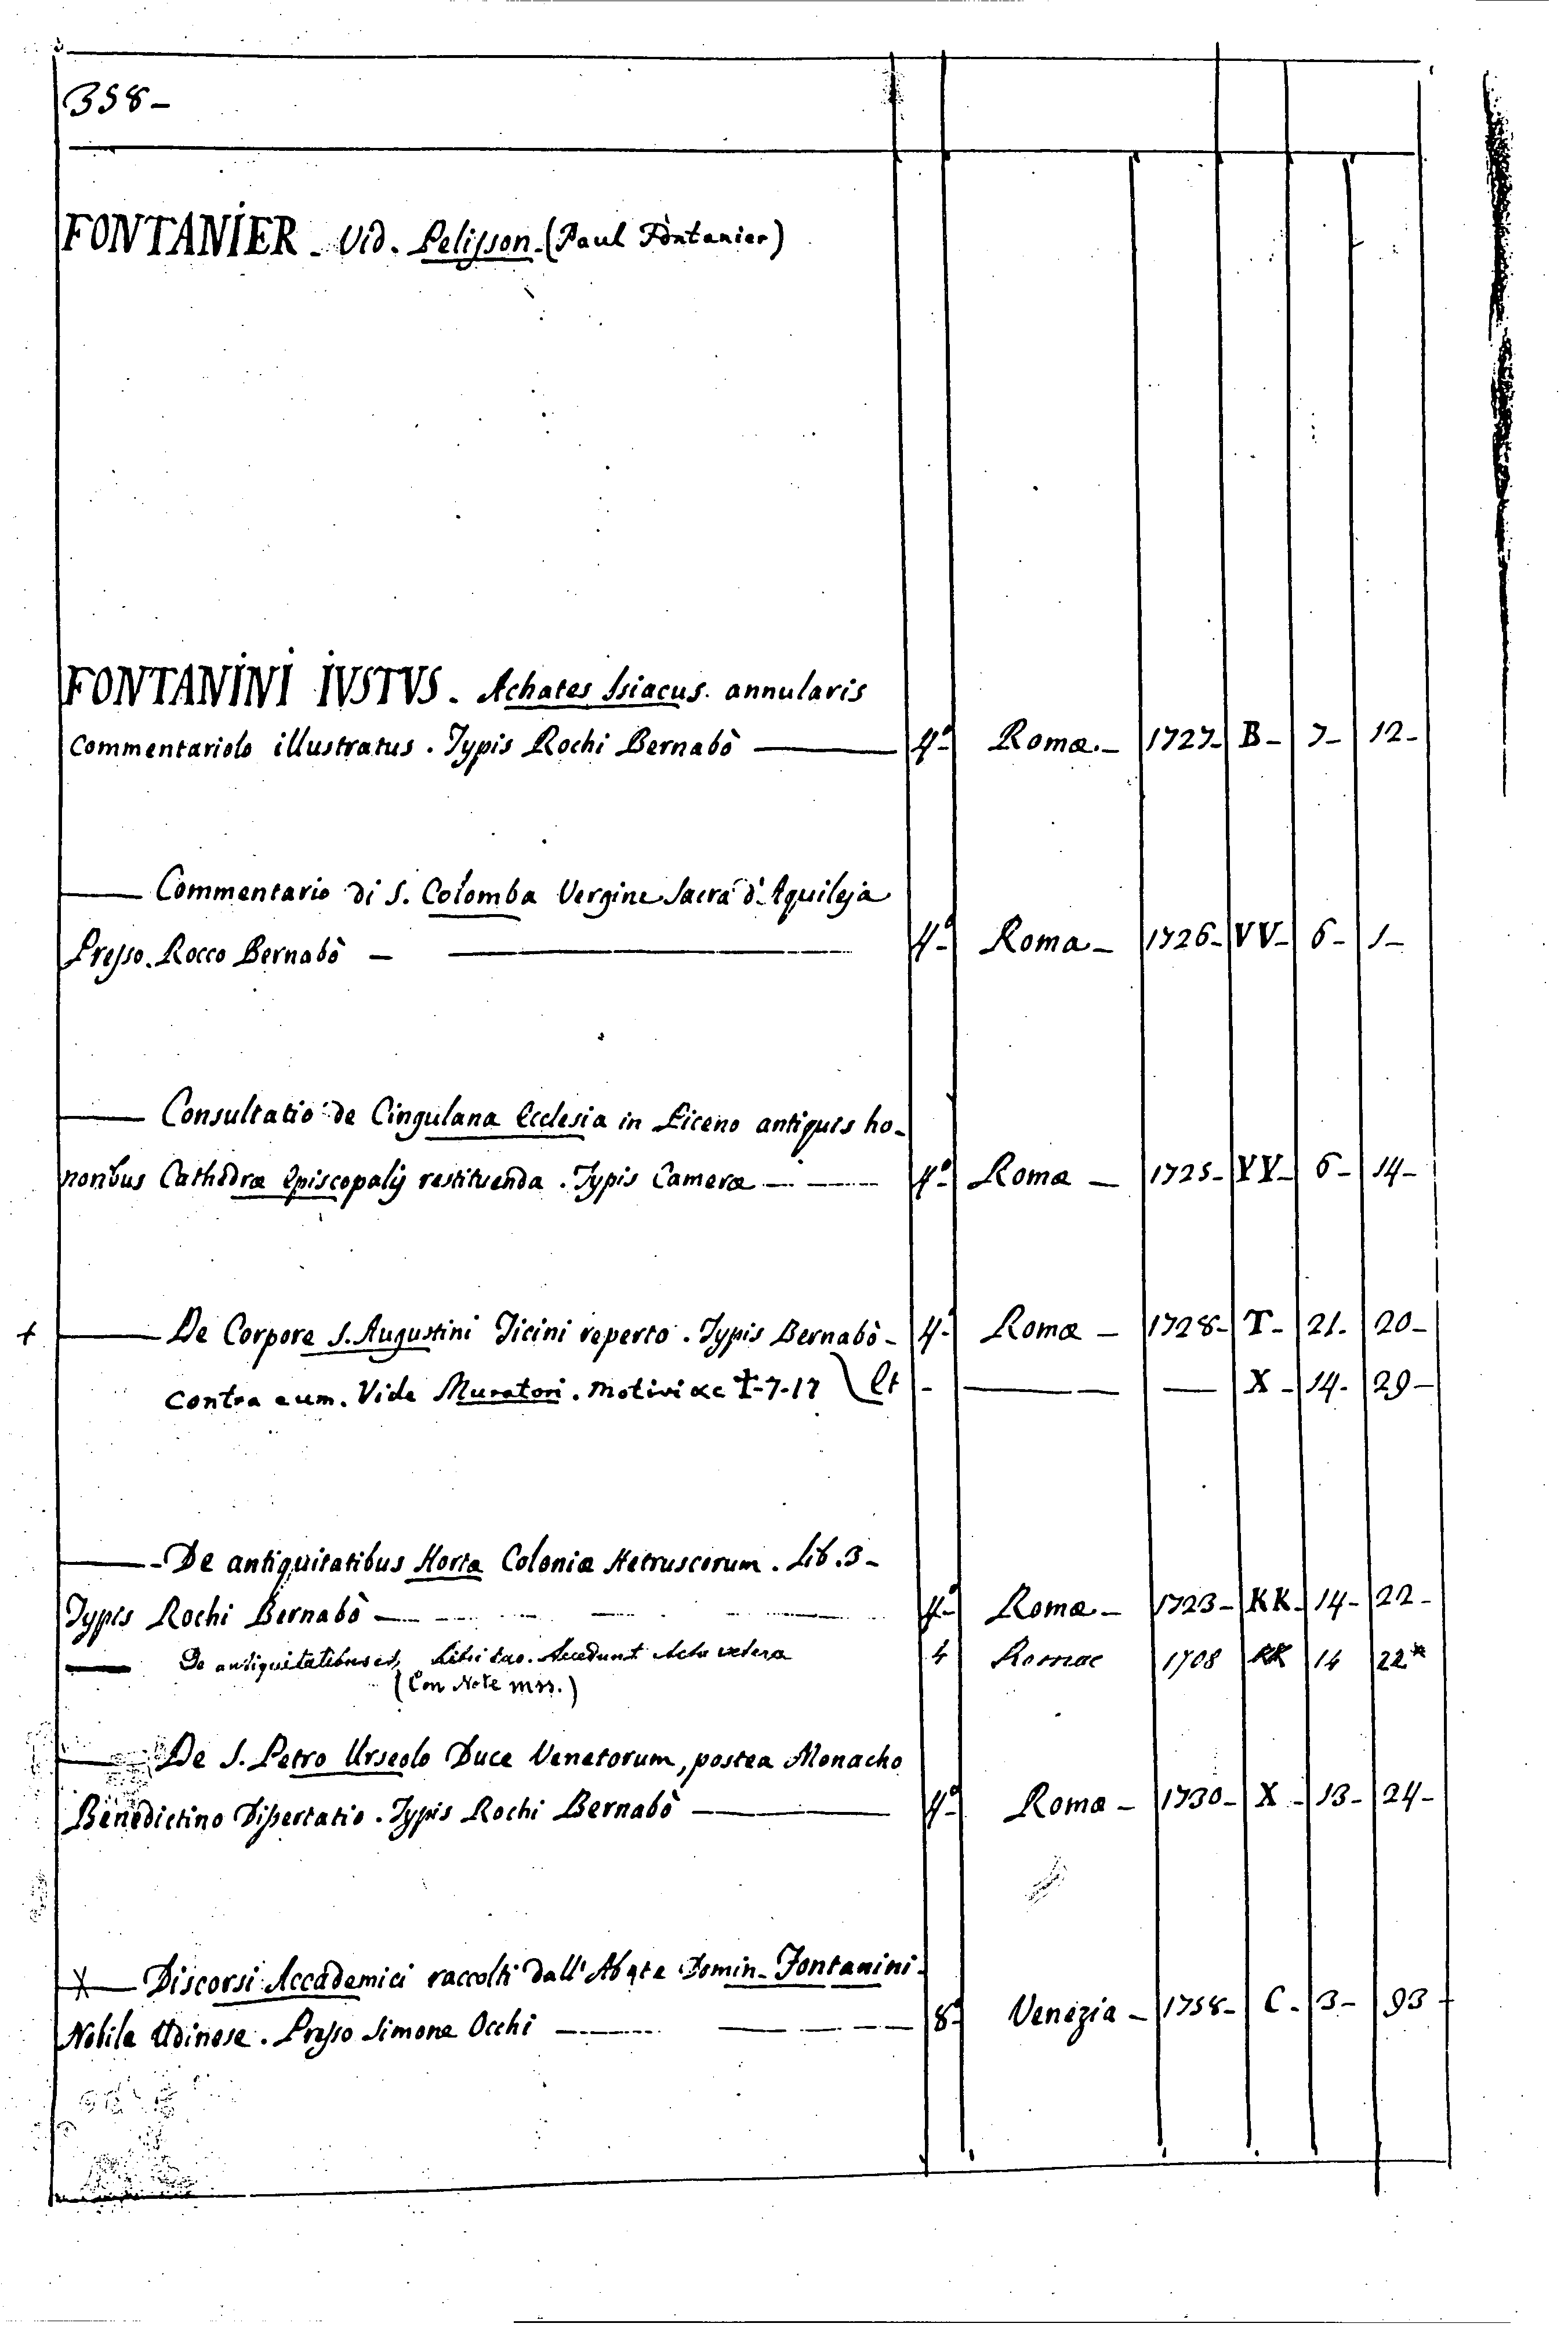 358-
FONTANIER - Vid. Pelisson - (Paul Fontanier)
FONTANINI IVSTVS - Achates Isiacus annularis
Commentariolo illustratus. Typis Rochi Bernabò — 4.° Romæ. - 1727- B- 7- 12-
— Commentario di S. Colomba Vergine Sacra d'Aquileja
Presso Rocco Bernabò — 4.° Roma - 1726- VV- 6- 1-
— Consultatio de Cingulana Ecclesia in Piceno antiquis ho-
noribus Cathedræ Episcopalis restituenda. Typis Cameræ — 4.° Romæ — 1725- VV- 6- 14-
+ — De Corpore S. Augustini Ticini reperto. Typis Bernabò - 4.° Romæ - 1728- T- 21- 20-
Contra eum. Vide Muratori. Motivi &c T-7-17 Et - — — X- 14- 29-
— De antiquitatibus Hortæ Coloniæ Hetruscorum. Lib. 3-
Typis Rochi Bernabò — 4.° Romæ - 1723- KK- 14- 22-
— De antiquitatibus et, Libri duo. Accedunt Acta vetera 4 Romae 1708 KK 14 22*
(Con Note mss.)
— De S. Petro Urseolo Duce Venetorum, postea Monacho
Benedictino Dissertatio. Typis Rochi Bernabò — 4.° Romæ - 1730- X- 13- 24-
X — Discorsi Accademici raccolti dall'Abate Domin. Fontanini.
Nobile Udinese. Presso Simone Occhi — 8.° Venezia - 1758- C- 3- 93